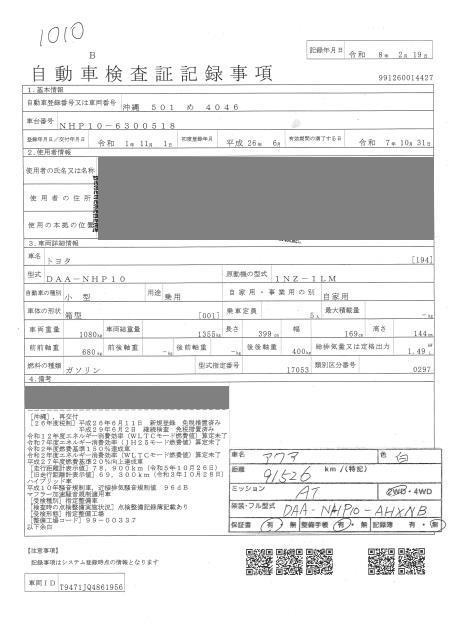 1010
B
記録年月日 令和 8年 2月19日
自動車検査証記録事項
991260014427
1.基本情報
自動車登録番号又は車両番号 沖縄 501 め 4046
車台番号 NHP10-6300518
登録年月日/交付年月日 令和 1年11月 1日 初度登録年月 平成26年 6月 有効期間の満了する日 令和 7年10月31日
2.使用者情報
使用者の氏名又は名称
使用者の住所
使用の本拠の位置
3.車両詳細情報
車名 トヨタ [194]
型式 DAA-NHP10 原動機の型式 1NZ-1LM
自動車の種別 小型 用途 乗用 自家用・事業用の別 自家用
車体の形状 箱型 [001] 乗車定員 5人 最大積載量 -kg
車両重量 1080kg 車両総重量 1355kg 長さ 399cm 幅 169cm 高さ 144cm
前前軸重 680kg 前後軸重 -kg 後前軸重 -kg 後後軸重 400kg 総排気量又は定格出力 1.49L
燃料の種類 ガソリン 型式指定番号 17053 類別区分番号 0297
4.備考
[沖縄],再交付
[26年度税制]平成26年6月11日 新規登録 免税措置済み
平成29年6月2日 継続検査 免税措置済み
令和12年度エネルギー消費効率(WLTCモード燃費値)算定未了
令和7年度エネルギー消費効率(JH25モード燃費値)算定未了
令和2年度燃費基準150%達成車
令和2年度エネルギー消費効率(WLTCモード燃費値)算定未了
平成27年度燃費基準20%向上達成車
[走行距離計表示値]78,900km(令和5年10月26日)
[旧走行距離計表示値]69,300km(令和3年10月28日)
ハイブリッド車
平成10年騒音規制車,近接排気騒音規制値 96dB
マフラー加速騒音規制適用車
[受検種別]指定整備車
[検査時の点検整備実施状況]点検整備記録簿記載あり
[受検形態]指定整備工場
[整備工場コード]99-00337
以下余白
車名 アクア 色 白
距離 91526 km/(特記)
ミッション AT 2WD・4WD
原型・フル型式 DAA-NHP10-AHXNB
保証書 有・無 整備手帳 有・無 記録簿 有・無
【注意事項】
記録事項はシステム登録時点の情報となります
車両ID T9471JQ4861956